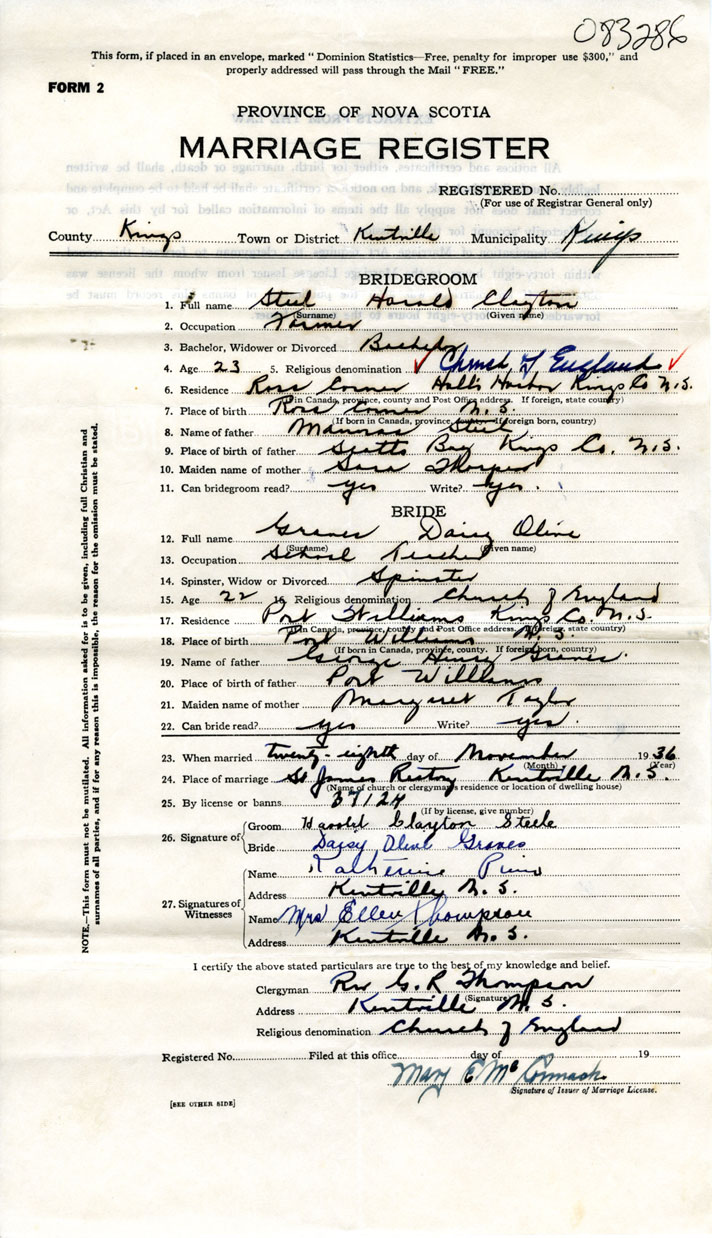 083286
This form, if placed in an envelope, marked "Dominion Statistics—Free, penalty for improper use $300," and
properly addressed will pass through the Mail "FREE."
FORM 2
PROVINCE OF NOVA SCOTIA
MARRIAGE REGISTER
REGISTERED No.
(For use of Registrar General only)
County Kings Town or District Kentville Municipality Kings
BRIDEGROOM
1. Full name Steel Harold Clayton
(Surname) (Given name)
2. Occupation Farmer
3. Bachelor, Widower or Divorced Bachelor
4. Age 23 5. Religious denomination Church of England
6. Residence Ross Corner Halls Harbor Kings Co N.S.
(in Canada, province, county and Post Office address. If foreign, state country)
7. Place of birth Ross Corner N.S.
(If born in Canada, province, county. If foreign born, country)
8. Name of father Steel
9. Place of birth of father Scotts Bay Kings Co. N.S.
10. Maiden name of mother Sara Thorpe
11. Can bridegroom read? yes Write? yes.
BRIDE
12. Full name Graves Daisy Olive
(Surname) (Given name)
13. Occupation School Teacher
14. Spinster, Widow or Divorced Spinster
15. Age 22 16. Religious denomination Church of England
17. Residence Port Williams Kings Co. N.S.
(in Canada, province, county and Post Office address. If foreign, state country)
18. Place of birth Port Williams N.S.
(If born in Canada, province, county. If foreign born, country)
19. Name of father George Henry Graves.
20. Place of birth of father Port Williams
21. Maiden name of mother Margaret Taylor
22. Can bride read? yes Write? yes.
23. When married twenty-eighth day of November 1936
(Month) (Year)
24. Place of marriage St James Rectory Kentville N.S.
(Name of church or clergyman's residence or location of dwelling house)
25. By license or banns 37124
(If by license, give number)
26. Signature of
Groom Harold Clayton Steele
Bride Daisy Olive Graves
27. Signatures of Witnesses
Name Katherine
Address Kentville N.S.
Name Mrs Ellen Thompson
Address Kentville N.S.
I certify the above stated particulars are true to the best of my knowledge and belief.
Clergyman Rev G. R Thompson
(Signature)
Address Kentville N.S.
Religious denomination Church of England
Registered No. Filed at this office day of 19
Mary E McCormack
Signature of Issuer of Marriage License.
[SEE OTHER SIDE]
NOTE.—This form must not be mutilated. All information asked for is to be given, including full Christian and
surnames of all parties, and if for any reason this is impossible, the reason for the omission must be stated.